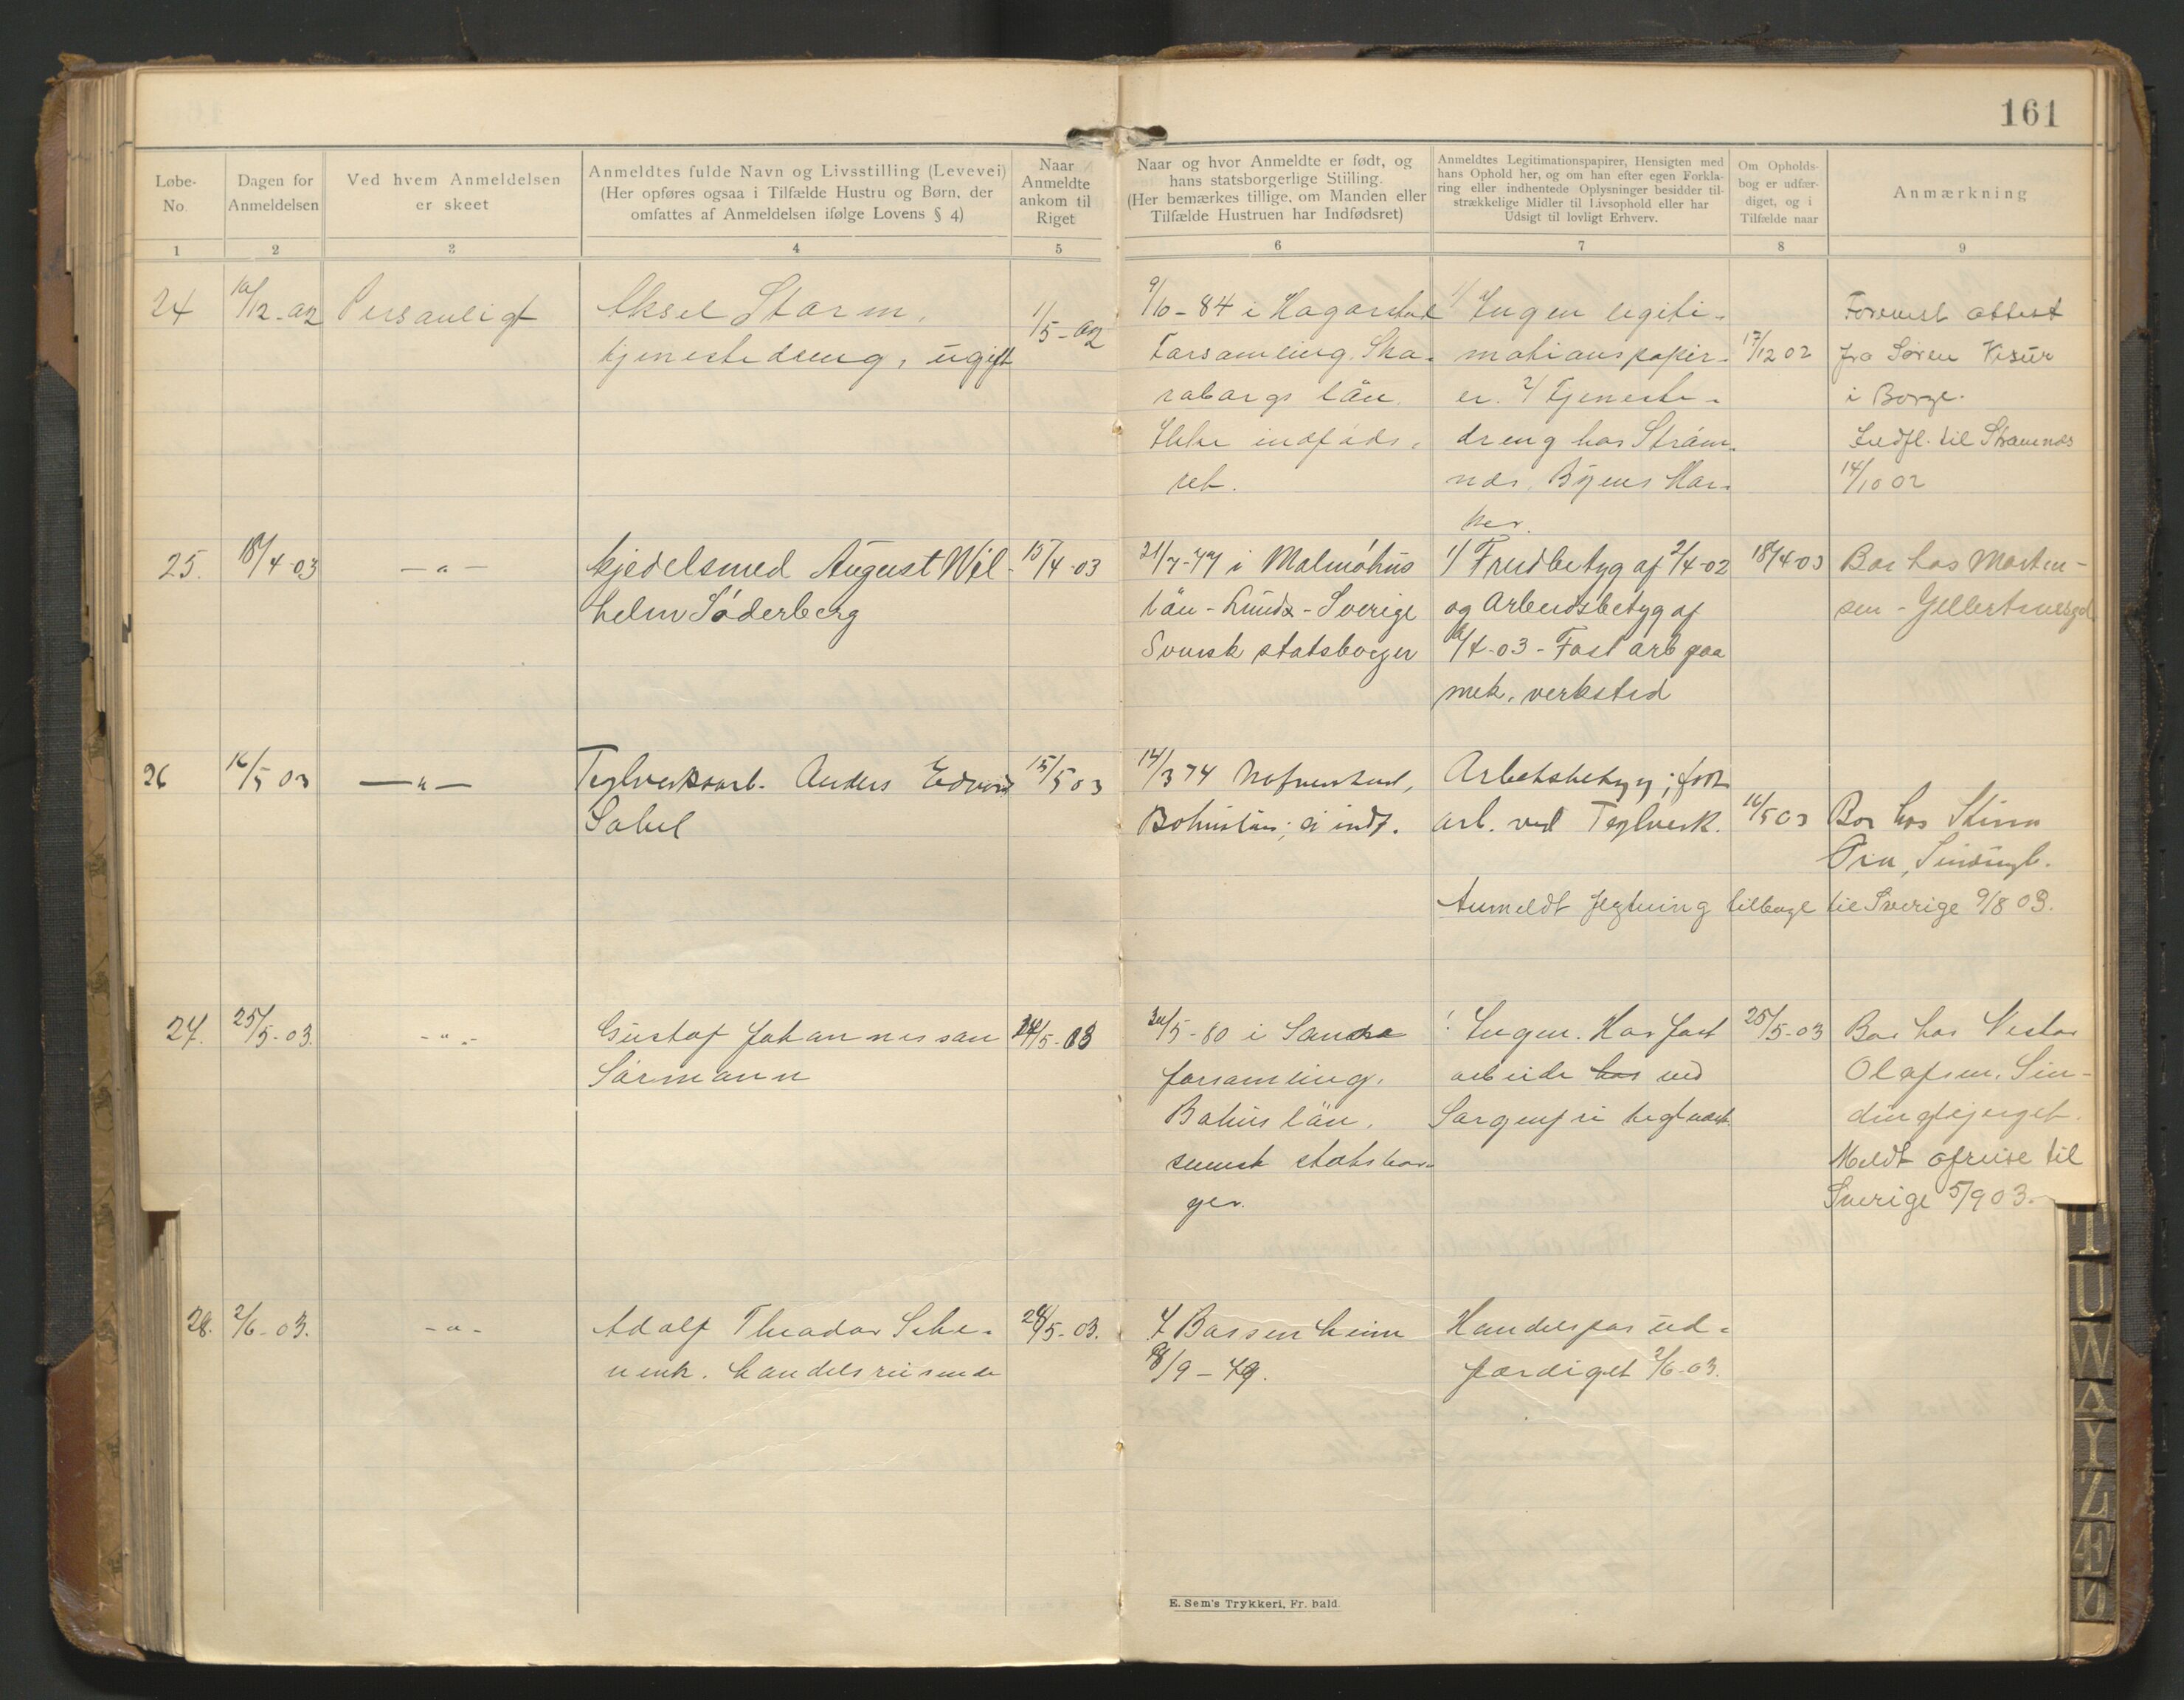 161
Løbe-
No.
Dagen for
Anmeldelsen
Ved hvem Anmeldelsen
er skeet
Anmeldtes fulde Navn og Livsstilling (Levevei)
(Her opføres ogsaa i Tilfælde Hustru og Børn, der
omfattes af Anmeldelsen ifølge Lovens § 4)
Naar
Anmeldte
ankom til
Riget
Naar og hvor Anmeldte er født, og
hans statsborgerlige Stilling.
(Her bemærkes tillige, om Manden eller
Tilfælde Hustruen har Indfødsret)
Anmeldtes Legitimationspapirer, Hensigten med
hans Ophold her, og om han efter egen Forkla-
ring eller indhentede Oplysninger besidder til-
strækkelige Midler til Livsophold eller har
Udsigt til lovligt Erhverv.
Om Opholds-
bog er udfær-
diget, og i
Tilfælde naar
Anmærkning
1 2 3 4 5 6 7 8 9
24
12-02
Personligt
Aksel Storm,
tjenestedreng, ugift
1/5-02
9/10-84 i Hagarstad
Forsamling. Ska-
raborgs län.
Ikke indføds-
ret.
1/ Ingen legiti-
mationspapir-
er. 2/ Tjeneste-
dreng hos Strøm-
næs, Byens Mar-
ker.
17/12 02
Forevist attest
fra Søren
i Borge.
Indfl. til Strømnæs
14/10 02
25.
18/4-03
— " —
Kjedelsmed August Wil-
helm Söderberg
15/4-03
21/7-77 i Malmöhus
län - Lunds - Sverige
Svensk statsborger
1/ Fredbetyg af 2/4-02
og Arbeidsbetyg af
/4-03 - Fast arb paa
mek. verksted
18/4-03
Bor hos Morten-
sen -
26
16/5 03
— " —
Teglverksarb. Anders Edvard
Sabel
15/5 03
14/3 74
Bohuslän; ei indf.
Arbetsbetyg; fast
arb. ved Teglverk.
16/5 03
Bor hos Stina
Anmeldt flytning tilbage til Sverige 9/8 03.
27.
25/5-03.
- " -
Gustaf Johannesson
Sörmann
24/5-03
30/5-80 i
forsamling,
Bohus län,
svensk statsbor-
ger.
! Ingen. Har fast
arbeide hos ved
Sorgenfri teglværk.
25/5-03
Bor hos Nestor
Olafsen, Sin-
dingbjerget.
Meldt afreise til
Sverige 5/9 03.
28.
2/6-03.
- " -
Adolf Theodor Sche-
nenk. handelsreisende
28/5-03.
f. Bassenheim
18/9-49.
Handelspas ud-
færdiget 2/6-03.
E. Sem's Trykkeri, Fr. hald.
T
U
W
A
Y
Z
Æ
Ø